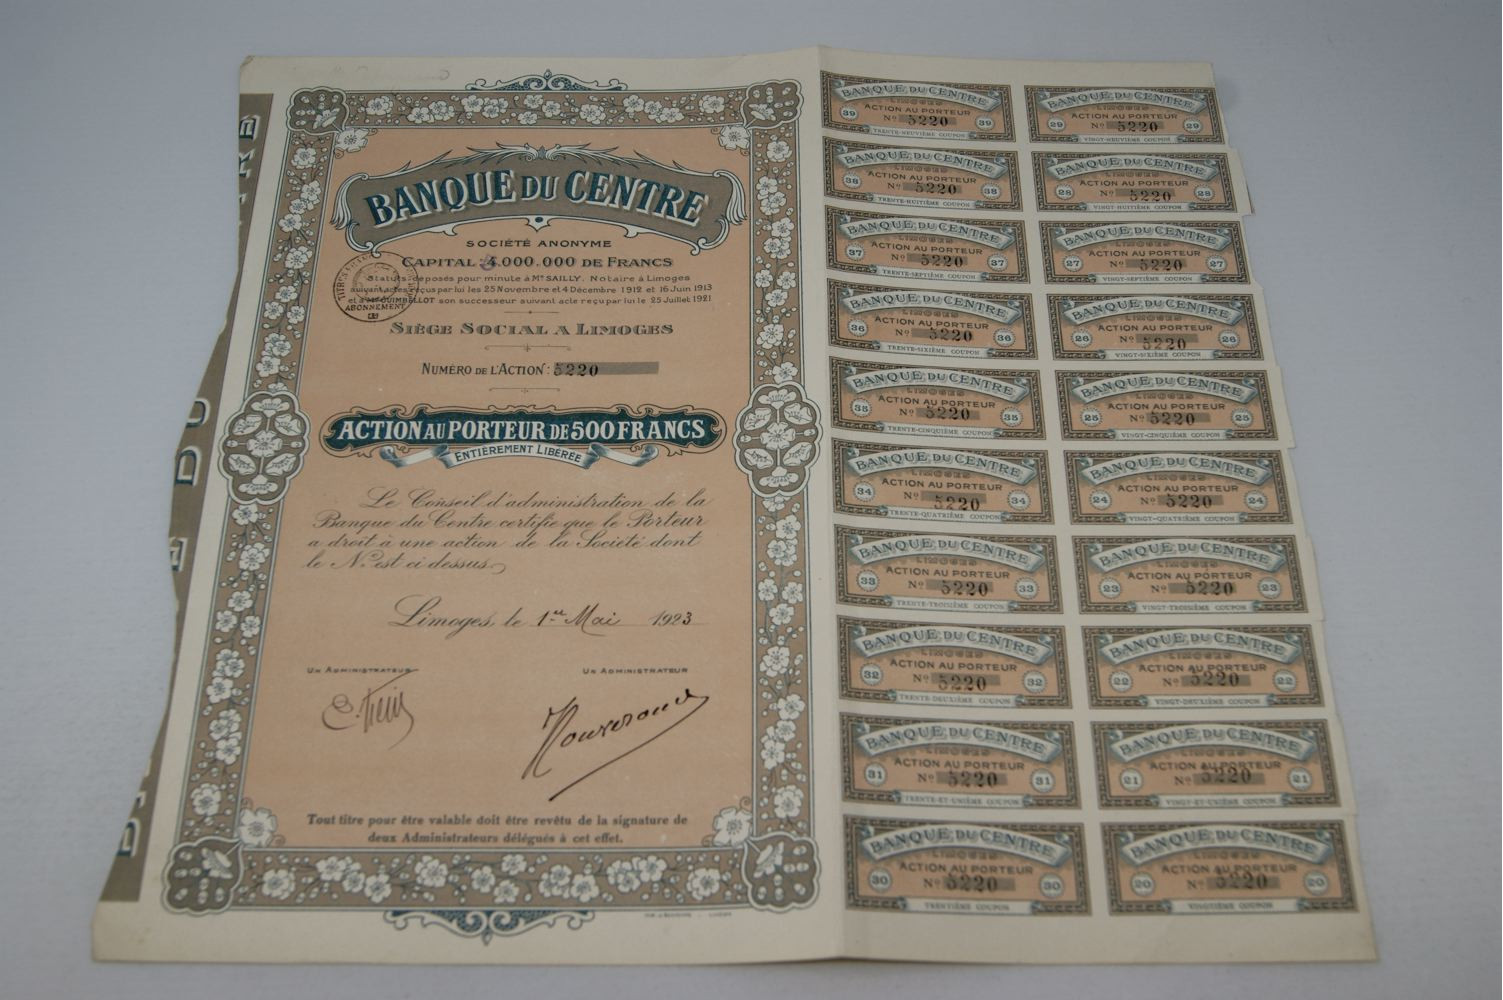 BANQUE DU CENTRE
SOCIÉTÉ ANONYME
CAPITAL: 4.000.000 DE FRANCS
Statuts déposés pour minute à Me SAILLY. Notaire à Limoges
suivant actes reçus par lui les 25 Novembre et 4 Décembre 1912 et 16 Juin 1913
et à Me QUIMBELLOT son successeur suivant acte reçu par lui le 25 Juillet 1921
ABONNEMENT
SIÈGE SOCIAL A LIMOGES
NUMÉRO DE L'ACTION: 5220
ACTION AU PORTEUR DE 500 FRANCS
ENTIÈREMENT LIBÉRÉE
Le Conseil d'administration de la
Banque du Centre certifie que le Porteur
a droit à une action de la Société dont
le No. est ci dessus
Limoges, le 1er Mai 1923
UN ADMINISTRATEUR UN ADMINISTRATEUR
Tout titre pour être valable doit être revêtu de la signature de
deux Administrateurs délégués à cet effet.
BANQUE DU CENTRE
LIMOGES
ACTION AU PORTEUR
39 No 5220 39
TRENTE-NEUVIÈME COUPON
BANQUE DU CENTRE
LIMOGES
ACTION AU PORTEUR
29 No 5220 29
VINGT-NEUVIÈME COUPON
BANQUE DU CENTRE
LIMOGES
ACTION AU PORTEUR
38 No 5220 38
TRENTE-HUITIÈME COUPON
BANQUE DU CENTRE
LIMOGES
ACTION AU PORTEUR
28 No 5220 28
VINGT-HUITIÈME COUPON
BANQUE DU CENTRE
LIMOGES
ACTION AU PORTEUR
37 No 5220 37
TRENTE-SEPTIÈME COUPON
BANQUE DU CENTRE
LIMOGES
ACTION AU PORTEUR
27 No 5220 27
VINGT-SEPTIÈME COUPON
BANQUE DU CENTRE
LIMOGES
ACTION AU PORTEUR
36 No 5220 36
TRENTE-SIXIÈME COUPON
BANQUE DU CENTRE
LIMOGES
ACTION AU PORTEUR
26 No 5220 26
VINGT-SIXIÈME COUPON
BANQUE DU CENTRE
LIMOGES
ACTION AU PORTEUR
35 No 5220 35
TRENTE-CINQUIÈME COUPON
BANQUE DU CENTRE
LIMOGES
ACTION AU PORTEUR
25 No 5220 25
VINGT-CINQUIÈME COUPON
BANQUE DU CENTRE
LIMOGES
ACTION AU PORTEUR
34 No 5220 34
TRENTE-QUATRIÈME COUPON
BANQUE DU CENTRE
LIMOGES
ACTION AU PORTEUR
24 No 5220 24
VINGT-QUATRIÈME COUPON
BANQUE DU CENTRE
LIMOGES
ACTION AU PORTEUR
33 No 5220 33
TRENTE-TROISIÈME COUPON
BANQUE DU CENTRE
LIMOGES
ACTION AU PORTEUR
23 No 5220 23
VINGT-TROISIÈME COUPON
BANQUE DU CENTRE
LIMOGES
ACTION AU PORTEUR
32 No 5220 32
TRENTE-DEUXIÈME COUPON
BANQUE DU CENTRE
LIMOGES
ACTION AU PORTEUR
22 No 5220 22
VINGT-DEUXIÈME COUPON
BANQUE DU CENTRE
LIMOGES
ACTION AU PORTEUR
31 No 5220 31
TRENTE-ET-UNIÈME COUPON
BANQUE DU CENTRE
LIMOGES
ACTION AU PORTEUR
21 No 5220 21
VINGT-ET-UNIÈME COUPON
BANQUE DU CENTRE
LIMOGES
ACTION AU PORTEUR
30 No 5220 30
TRENTIÈME COUPON
BANQUE DU CENTRE
LIMOGES
ACTION AU PORTEUR
20 No 5220 20
VINGTIÈME COUPON